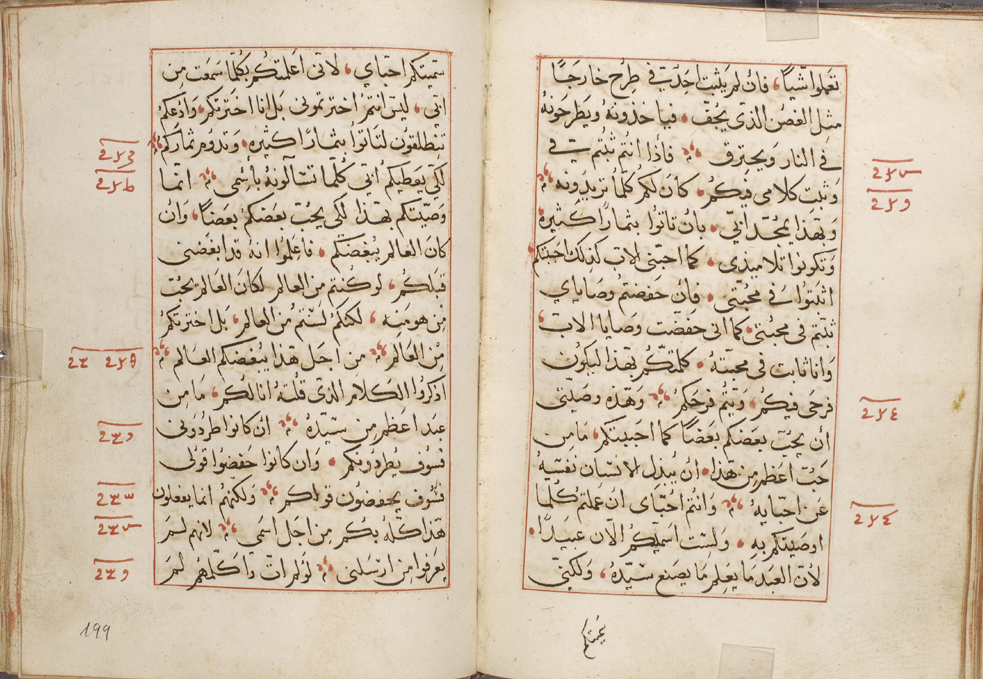 تعملوا شياً فان لم يثبت احدٌ في طرح خارجًا
مثل الغصن الذى يجف فياخذونه ويطرحونه
في النار ويحترق فاذا انتم ثبتم في
وثبت كلامى فيكم كان لكم كلما تريدونه
وبهذا يمجد ابي بان تاتوا بثمار كثيرة
وتكونوا تلاميذى كما احبنى الاب كذلك احببتكم
اثبتوا في محبتي فان حفضتم وصاياي
ثبتم في محبتي كما انى حفضت وصايا الاب
وانا ثابت في محبته كلمتكم بهذا ليكون
فرحى فيكم ويتم فرحكم وهذه وصيتى
ان يحب بعضكم بعضًا كما احببتكم ما من
حب اعظم من هذا ان يبدل الانسان نفسه
عن احبايه وانتم احباى ان عملتم كلما
اوصيتكم به ولست اسميكم الآن عبيدًا
لأن العبد ما يعلم ما يصنع سيده ولكنى
سميتكم احباي لانى اعلمتكم بكلما سمعت من
ابي ليس انتم اخترتمونى بل انا اخترتكم وادعكم
تنطلقون لتاتوا بثمار كثيره وتدوم ثماركم
لكى يعطيكم ابي كلما تسالونه باسمى انما
وصيتكم بهذا لكى يحب بعضكم بعضاً وان
كان العالم يبغضكم فاعلموا انه قد ابغضنى
قبلكم لو كنتم من العالم لكان العالم يحب
من هو منه لكنكم لستم من العالم بل اخترتكم
من العالم من اجل هذا يبغضكم العالم
اذكروا الكلام الذى قلته انا لكم ما من
عبد اعظم من سيده ان كانوا طردونى
فسوف يطردونكم وان كانوا حفضوا قولى
فسوف يحفضون قولكم ولكنهم انما يفعلون
هذا كله بكم من اجل اسمى لانهم لم
يعرفوا من ارسلنى لو لم ات واكلمهم لم
199